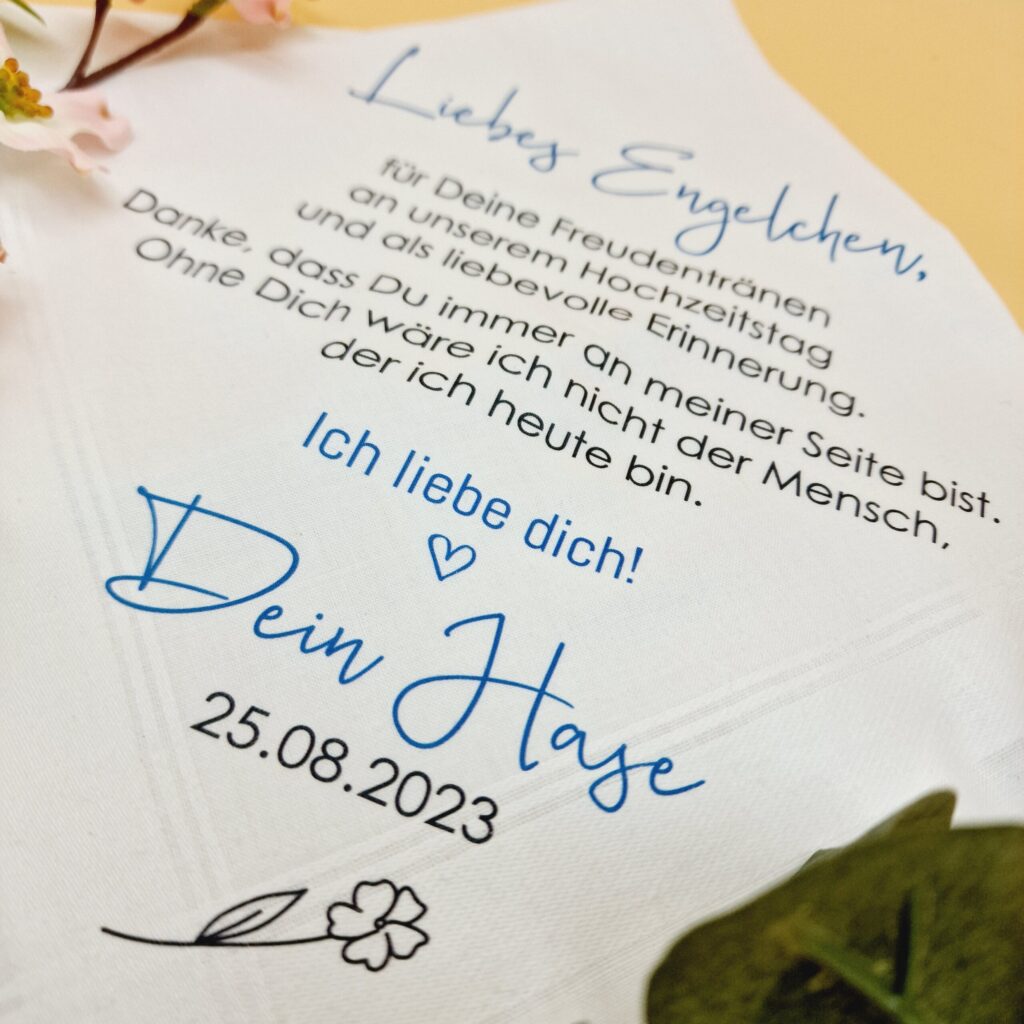 Liebes Engelchen,
für Deine Freudentränen
an unserem Hochzeitstag
und als liebevolle Erinnerung.
Danke, dass Du immer an meiner Seite bist.
Ohne Dich wäre ich nicht der Mensch,
der ich heute bin.
Ich liebe dich!
Dein Hase
25.08.2023